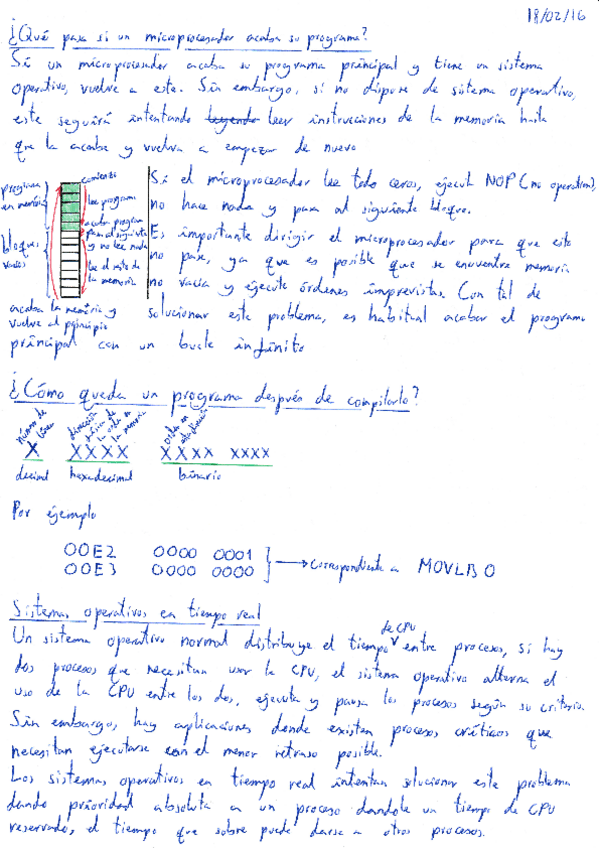 18/02/16
¿Qué pasa si un microprocesador acaba su programa?
Si un microprocesador acaba su programa principal y tiene un sistema
operativo, vuelve a este. Sin embargo, si no dispone de sistema operativo,
este seguirá intentando leyendo leer instrucciones de la memoria hasta
que la acabe y vuelva a empezar de nuevo
programa
en memoria
bloques
vacíos
comienzo
lee programa
acaba programa
pasa al siguiente
y no lee nada
lee el resto de
la memoria
acaba la memoria y
vuelve al principio
Si el microprocesador lee todo ceros, ejecuta NOP (no operation),
no hace nada y pasa al siguiente bloque.
Es importante dirigir el microprocesador para que esto
no pase, ya que es posible que se encuentre memoria
no vacía y ejecute órdenes imprevistas. Con tal de
solucionar este problema, es habitual acabar el programa
principal con un bucle infinito
¿Cómo queda un programa después de compilarlo?
Número de línea
dirección de la orden la memoria
Orden en
X XXXX XXXX XXXX
decimal hexadecimal binario
Por ejemplo
00E2 0000 0001
00E3 0000 0000
Correspondiente a MOVLB 0
Sistemas operativos en tiempo real
Un sistema operativo normal distribuye el tiempo de CPU entre procesos, si hay
dos procesos que necesitan usar la CPU, el sistema operativo alterna el
uso de la CPU entre los dos, ejecuta y pausa los procesos según su criterio.
Sin embargo, hay aplicaciones donde existen procesos críticos que
necesitan ejecutarse con el menor retraso posible.
Los sistemas operativos en tiempo real intentan solucionar este problema
dando prioridad absoluta a un proceso dandole un tiempo de CPU
reservado, el tiempo que sobre puede darse a otros procesos.